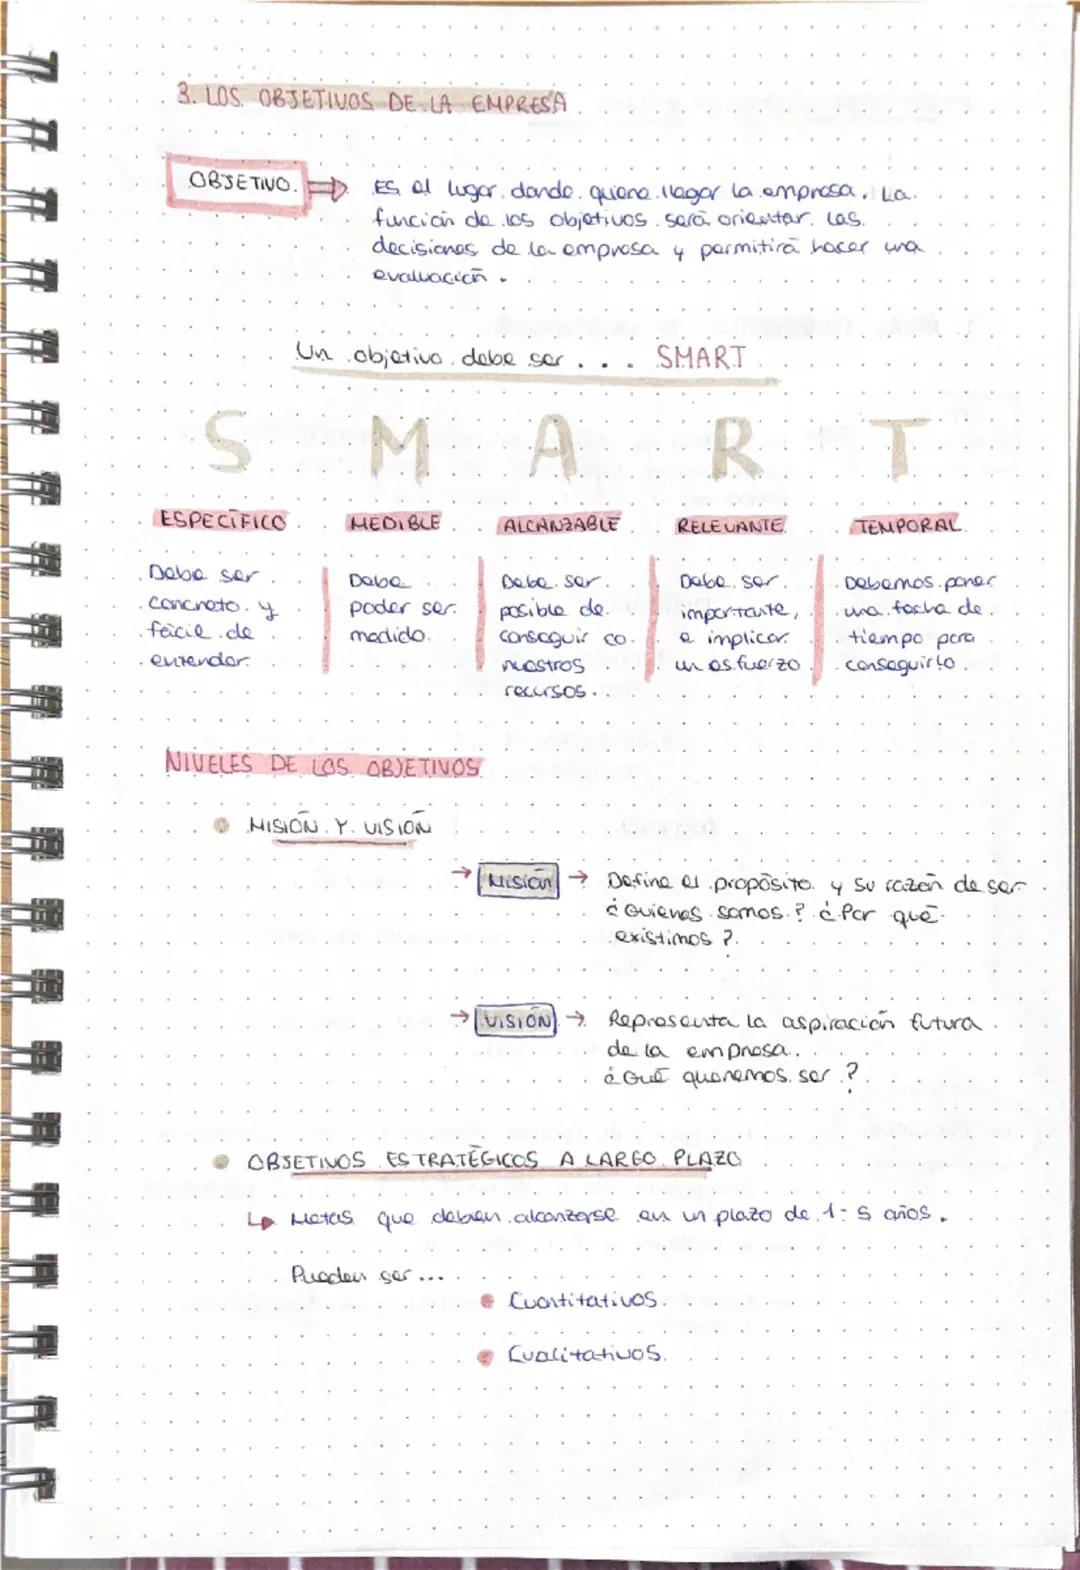 3. LOS OBJETIVOS DE LA EMPRESA
OBJETIVO
Es el lugar donde quiere llegar la empresa. La
función de los objetivos será orientar las
decisiones de la empresa y permitirá hacer una
evaluación.
Un objetivo debe ser . . . SMART
S M A R T
ESPECÍFICO MEDIBLE ALCANZABLE RELEVANTE TEMPORAL
Debe ser
concreto y
fácil de
entender
Debe
poder ser
medido.
Debe ser
posible de
conseguir co
nuestros
recursos.
Debe ser
importante,
e implicar
un esfuerzo
Debemos poner
una fecha de
tiempo para
conseguirlo.
NIVELES DE LOS OBJETIVOS
MISIÓN Y VISIÓN
→ Misión → Define el propósito y su razón de ser
¿Quienes somos? ¿Por qué
existimos?
→ VISIÓN → Representa la aspiración futura
de la empresa.
¿Qué queremos ser?
OBJETIVOS ESTRATÉGICOS A LARGO PLAZO
Metas que deben alcanzarse en un plazo de 1-5 años.
Pueden ser...
Cuantitativos.
Cualitativos.